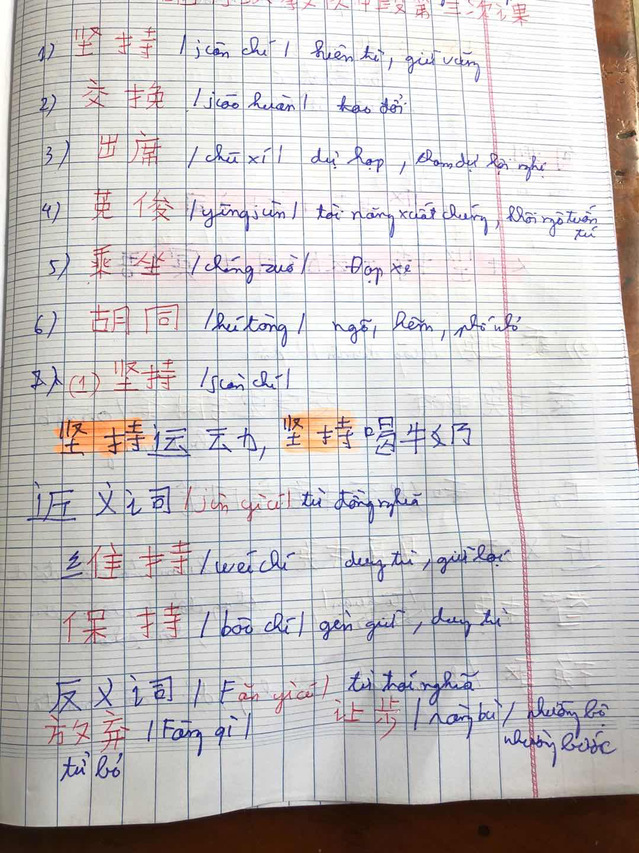 第三次课
1) 坚持 /jiān chí/ kiên trì, giữ vững
2) 交换 /jiāo huàn/ trao đổi
3) 出席 /chū xí/ dự họp, tham dự hội nghị
4) 英俊 /yīngjùn/ tài năng xuất chúng, khôi ngô tuấn tú
5) 乘坐 /chéng zuò/ Đạp xe
6) 胡同 /hú tòng/ ngõ, hẻm, phố nhỏ
(1) 坚持 /jiān chí/
坚持运动, 坚持喝牛奶
近义词 /jìn yìcí/ từ đồng nghĩa
维持 /wéi chí duy trì, giữ lại
保持 /bǎo chí/ gìn giữ, duy trì
反义词 /Fǎn yìcí/ từ trái nghĩa
放弃 /Fàng qì/ 让步 /ràng bù/ nhường bộ
từ bỏ nhường bước